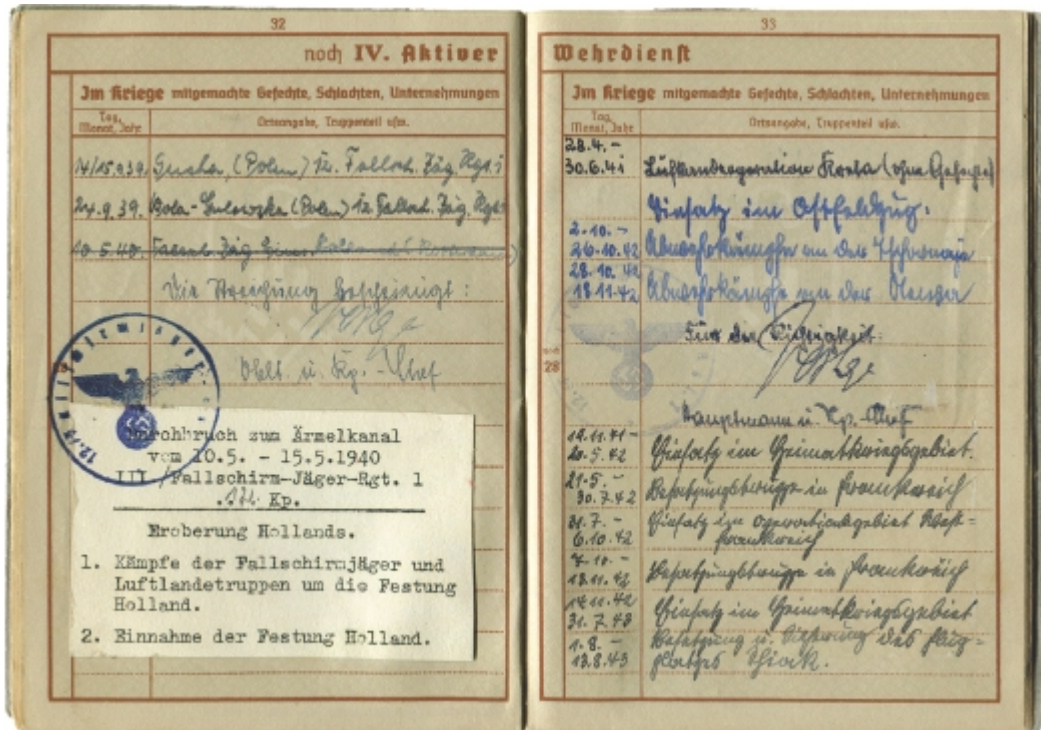 32
noch IV. Aktiver
Im Kriege mitgemachte Gefechte, Schlachten, Unternehmungen
Tag, Monat, Jahr
Ortsangabe, Truppenteil usw.
14/15.9.39. (Polen) 12. Fallsch. Jäg. Rgt. 1
24.9.39. Wola-Gulowska (Polen) 12. Fallsch. Jäg. Rgt. 1
10.5.40. Fallsch. Jäg.
Die Streichung bescheinigt:
Oblt. u. Kp.-Chef
Durchbruch zum Ärmelkanal
vom 10.5. - 15.5.1940
III./Fallschirm-Jäger-Rgt. 1
.12. Kp.
Eroberung Hollands.
1. Kämpfe der Fallschirmjäger und
Luftlandetruppen um die Festung
Holland.
2. Einnahme der Festung Holland.
33
Wehrdienst
Im Kriege mitgemachte Gefechte, Schlachten, Unternehmungen
Tag, Monat, Jahr
Ortsangabe, Truppenteil usw.
28.4. -
30.6.41 Luftlandeoperation Kreta (ohne Gefechte)
Einsatz im Ostfeldzug.
2.10. -
26.10.42 Abwehrkämpfe an der Tschernaja
28.10.42
18.11.42 Abwehrkämpfe an der Newa
Für die Richtigkeit:
28
Hauptmann u. Kp.-Chef
19.11.41 -
20.5.42 Einsatz im Heimatkriegsgebiet.
21.5. -
30.7.42 Besatzungstruppe in Frankreich
31.7. -
6.10.42 Einsatz im Operationsgebiet West-
frankreich
7.10. -
13.11.42 Besatzungstruppe in Frankreich
14.11.42
31.7.43 Einsatz im Heimatkriegsgebiet
1.8. -
12.8.43 Besetzung u. Sicherung des Flug-
platzes